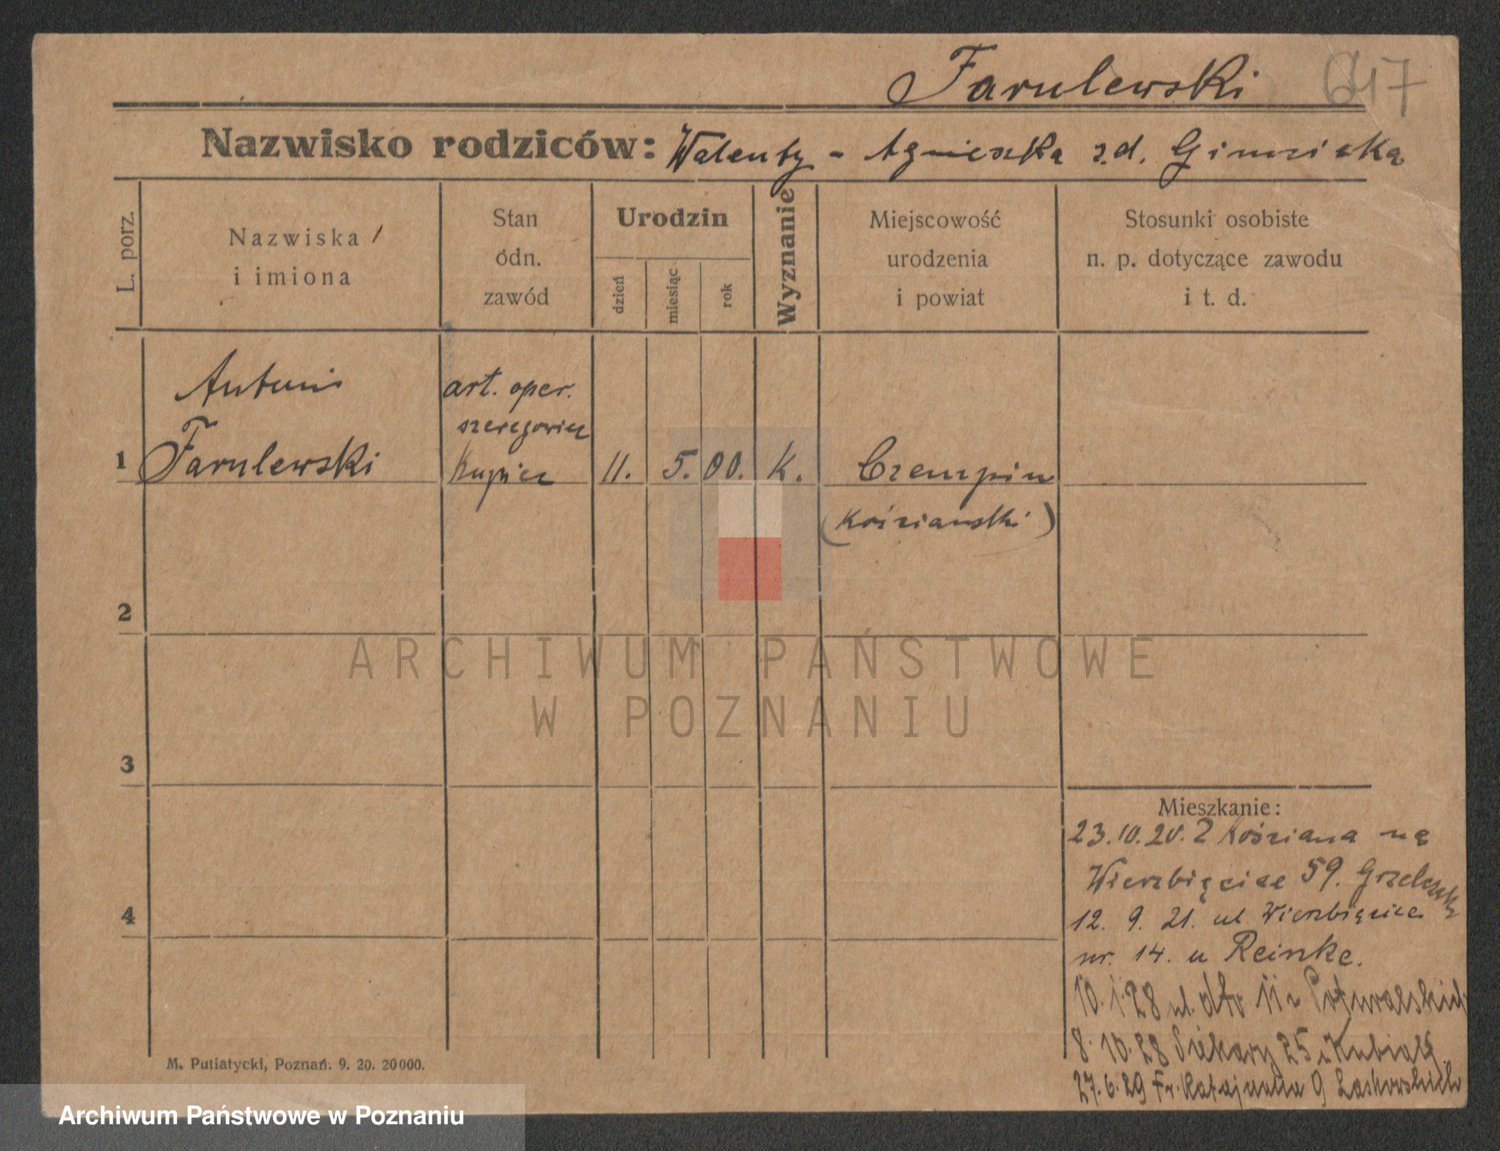 Farulewski 647
Nazwisko rodziców: Walenty - Agnieszka z.d.
L. porz.
Nazwiska
i imiona
Stan
ódn.
zawód
Urodzin
dzień
miesiąc
rok
Wyznanie
Miejscowość
urodzenia
i powiat
Stosunki osobiste
n. p. dotyczące zawodu
i t. d.
Antoni
art. oper.
szeregowiec
1 Farulewski Kupiec 11. 5. 00. K. Czempin
(Kościański)
2
ARCHIWUM PAŃSTWOWE
W POZNANIU
3
Mieszkanie:
23.10.20. Z Kościana na
Wierzbięcice 59.
12. 9. 21. ul. Wierzbięcice
4
nr. 14. u Reinke.
10.1.28 ul. dto 11
8.10.28 25 Kubiak
27.6.29 Fr. Ratajczaka 9 Laskowskich
M. Putiatycki, Poznań. 9. 20. 20000.
Archiwum Państwowe w Poznaniu